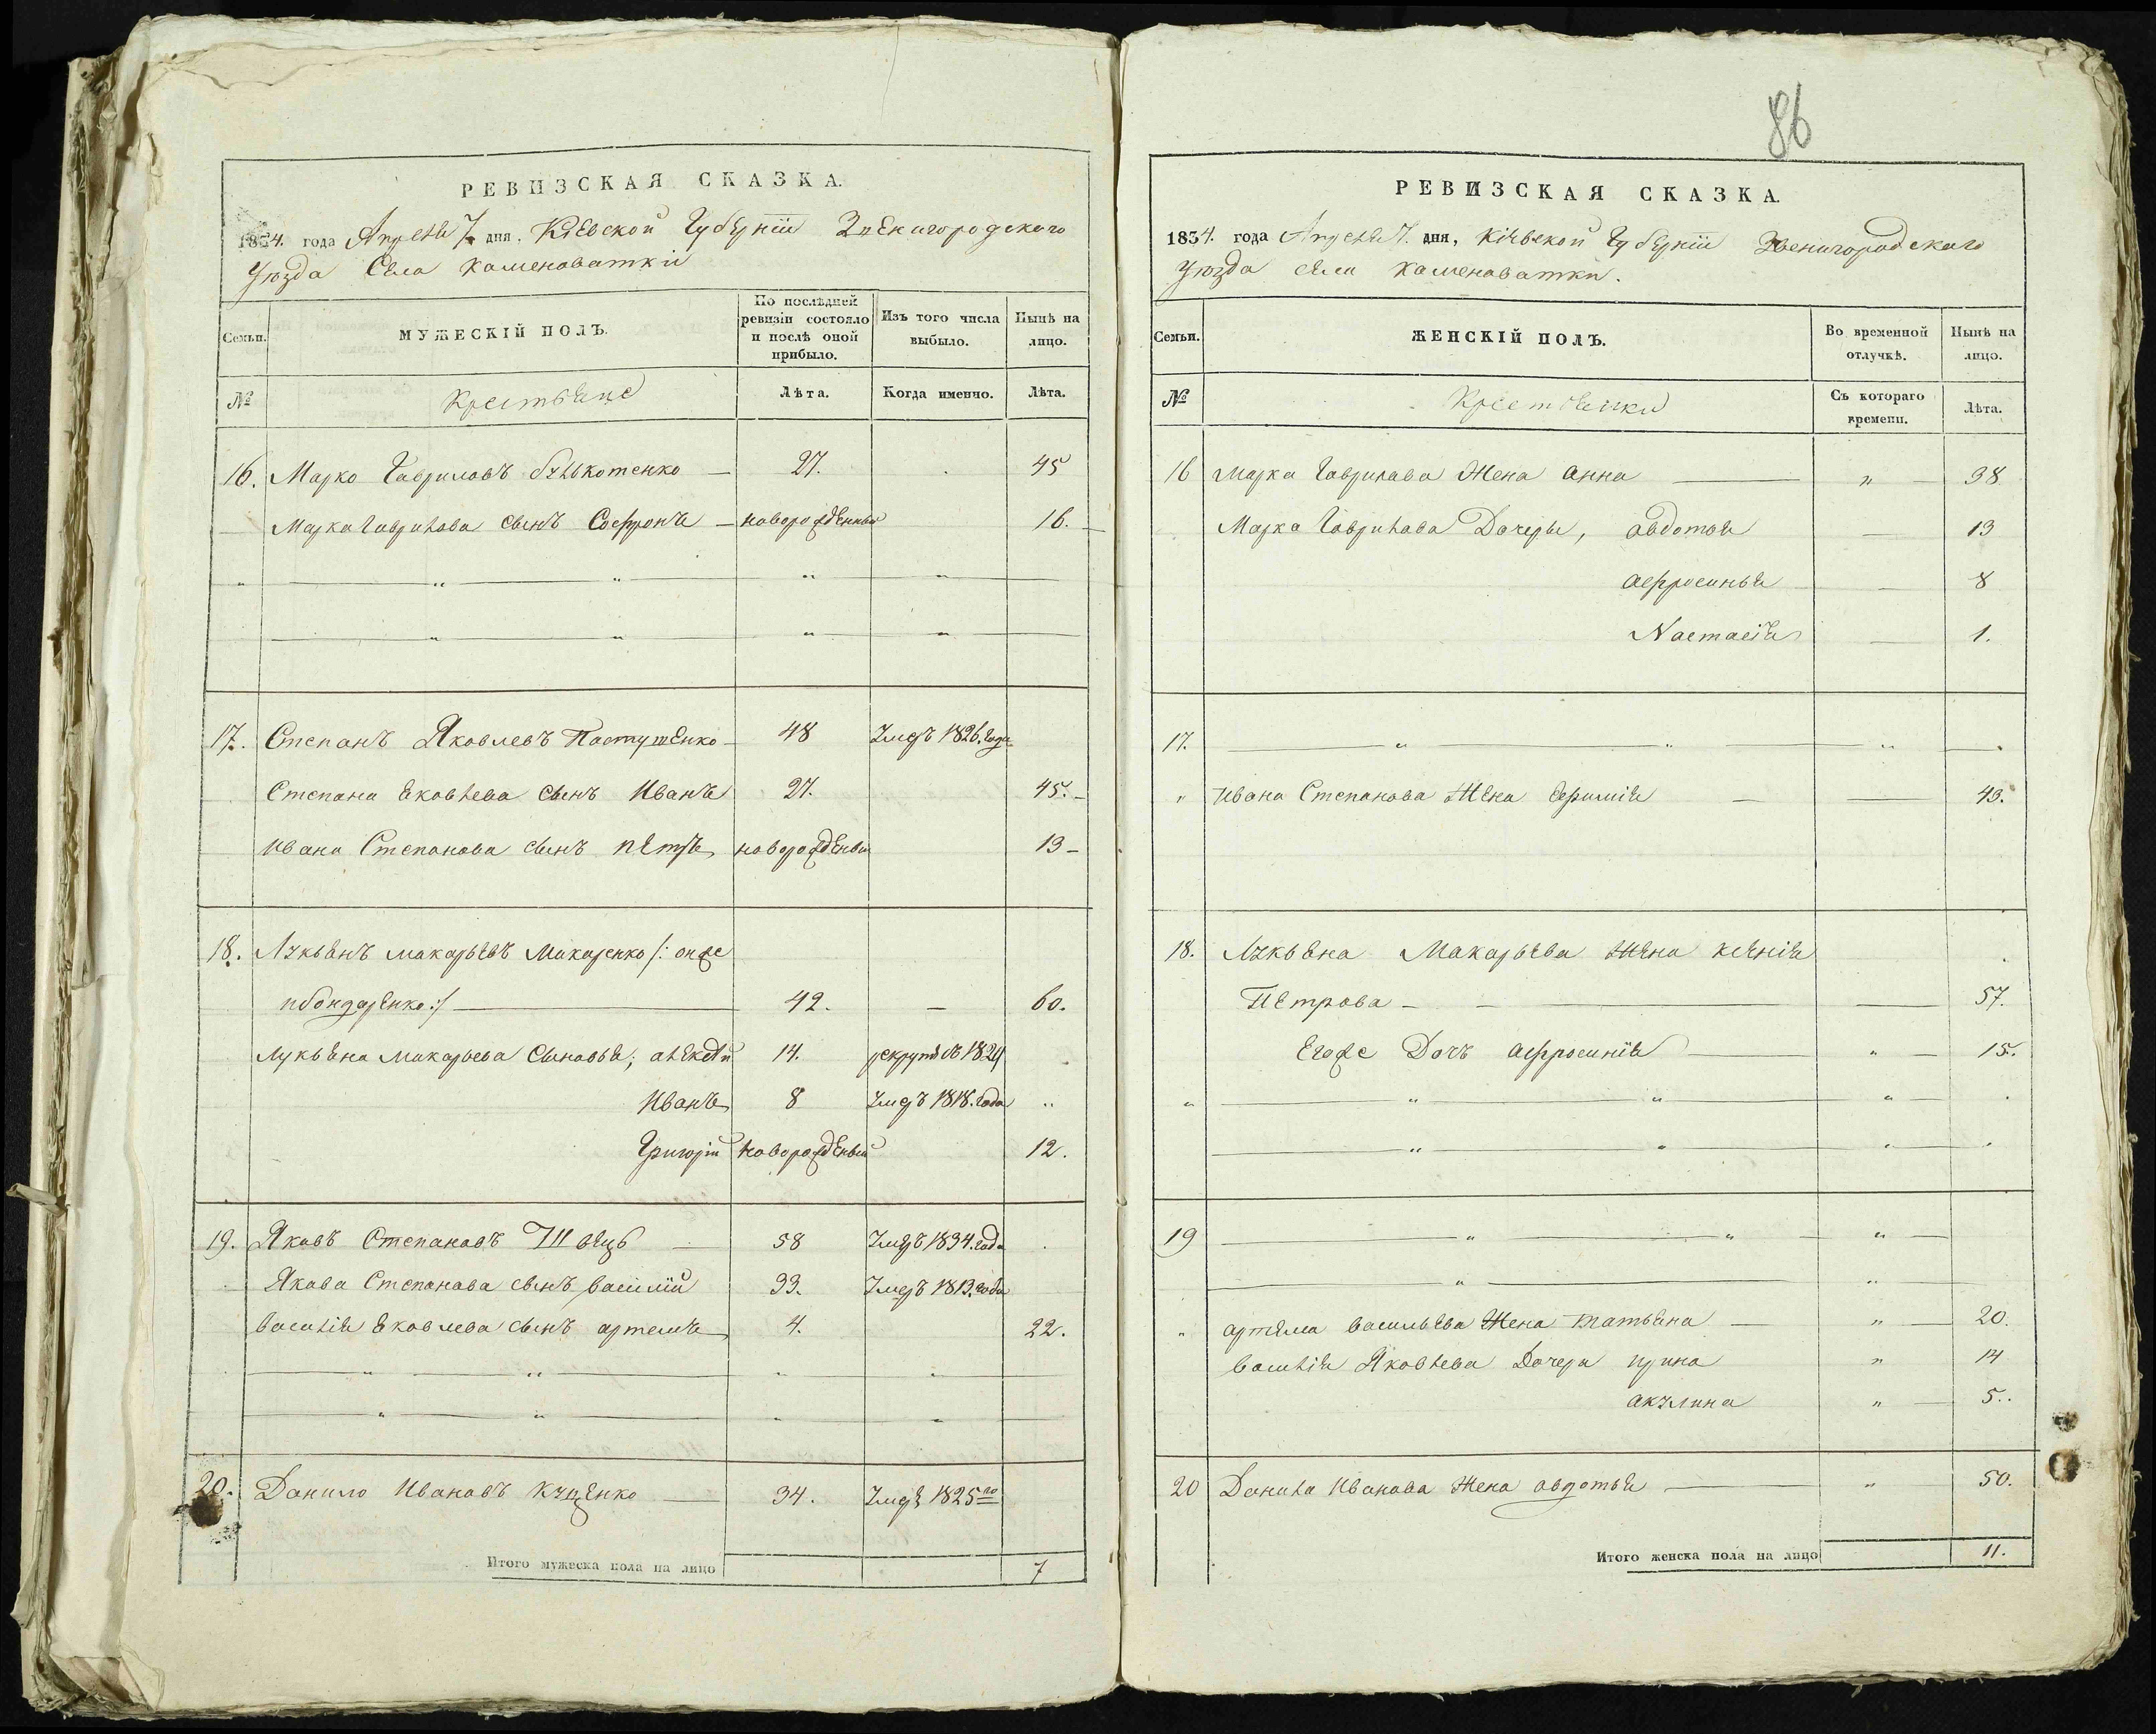 РЕВИЗСКАЯ СКАЗКА.
1834. года Апреля 7 дня, Кіевской Губерніи Звенигородского
Уюзда Села Каменоватки
Семьи.
МУЖЕСКІЙ ПОЛЪ.
По послѣдней ревизіи состояло и послѣ оной прибыло.
Изъ того числа выбыло.
Нынѣ на лицо.
№
Крестьяне
Лѣта.
Когда именно.
Лѣта.
16. Марко Гавриловъ — 27. 45
Марка Гаврилова сынъ Софронъ — новорожденный 16.
17. Степанъ Яковлевъ Пастушенко — 48 Умеръ 1826. года
Степана Яковлева сынъ Иванъ 27. 45. —
Ивана Степанова сынъ Петръ новорожденый 13 —
18. Лукьянъ Макарьевъ Макаренко /: онже
и бондаренко :/ — 42. — 60.
Лукьяна Макарьева Сыновья; алексѣй 14. рекрутъ съ 1824
Иванъ 8 Умеръ 1818. года „
Григорій новорожденый 12.
19. Яковъ Степановъ Швецъ — 58 Умеръ 1834. года
Якова Степанова сынъ василій 33. Умеръ 1813. года
василія Яковлева сынъ артемъ 4. 22.
20. Данило Ивановъ Куценко — 34. Умеръ 1825го
Итого мужеска пола на лицо 7
86
РЕВИЗСКАЯ СКАЗКА.
1834. года Апреля 7. дня, Кіевской Губерніи Звенигородского
Уюзда села Каменоватки.
Семьи.
ЖЕНСКІЙ ПОЛЪ.
Во временной отлучкѣ.
Нынѣ на лицо.
№
Крестьянки
Съ котораго времени.
Лѣта.
16 Марка Гаврилава Жена анна — „ — 38
Марка Гаврилава Дочеры, авдотья — 13
афросинья — 8
Настасія — 1.
17. — „ — „ —
„ Ивана Степанова Жена Ефимія — 43.
18. Лукьяна Макарьева Жена ксенія
Петрова — 57.
Егоже Дочъ афросинія — „ — 15.
19 — „ — „ — „ —
„ артема васильева Жена татьяна — „ — 20.
василія Яковлева Дочери ирина „ 14
акулина „ — 5.
20 Данила Иванова Жена авдотья — „ 50.
Итого женска пола на лицо 11.